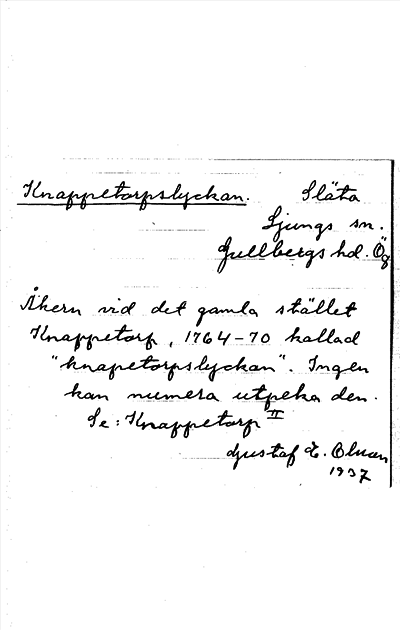 Knappetorpslyckan. Släta
Ljungs sn.
Gullbergs hd. Ög
Åkern vid det gamla stället
Knappetorp, 1764-70 kallad
"knapetorpslyckan". Ingen
kan numera utpeka den.
Se: Knappetorp II
Gustaf E. Olsson
1937